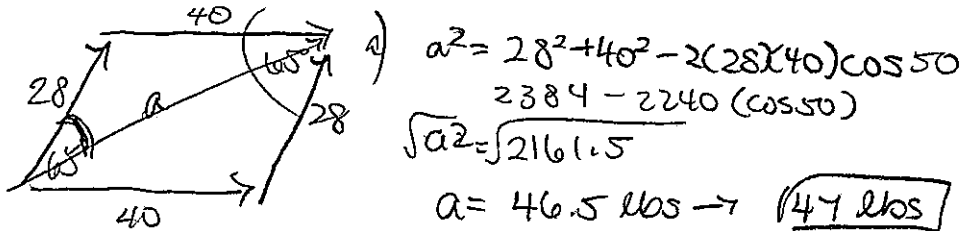 40
28
a
65°
65
28
40
a) a² = 28² + 40² - 2(28)(40) cos 50
2384 - 2240 (cos 50)
√a² = √2161.5
a = 46.5 lbs → 47 lbs